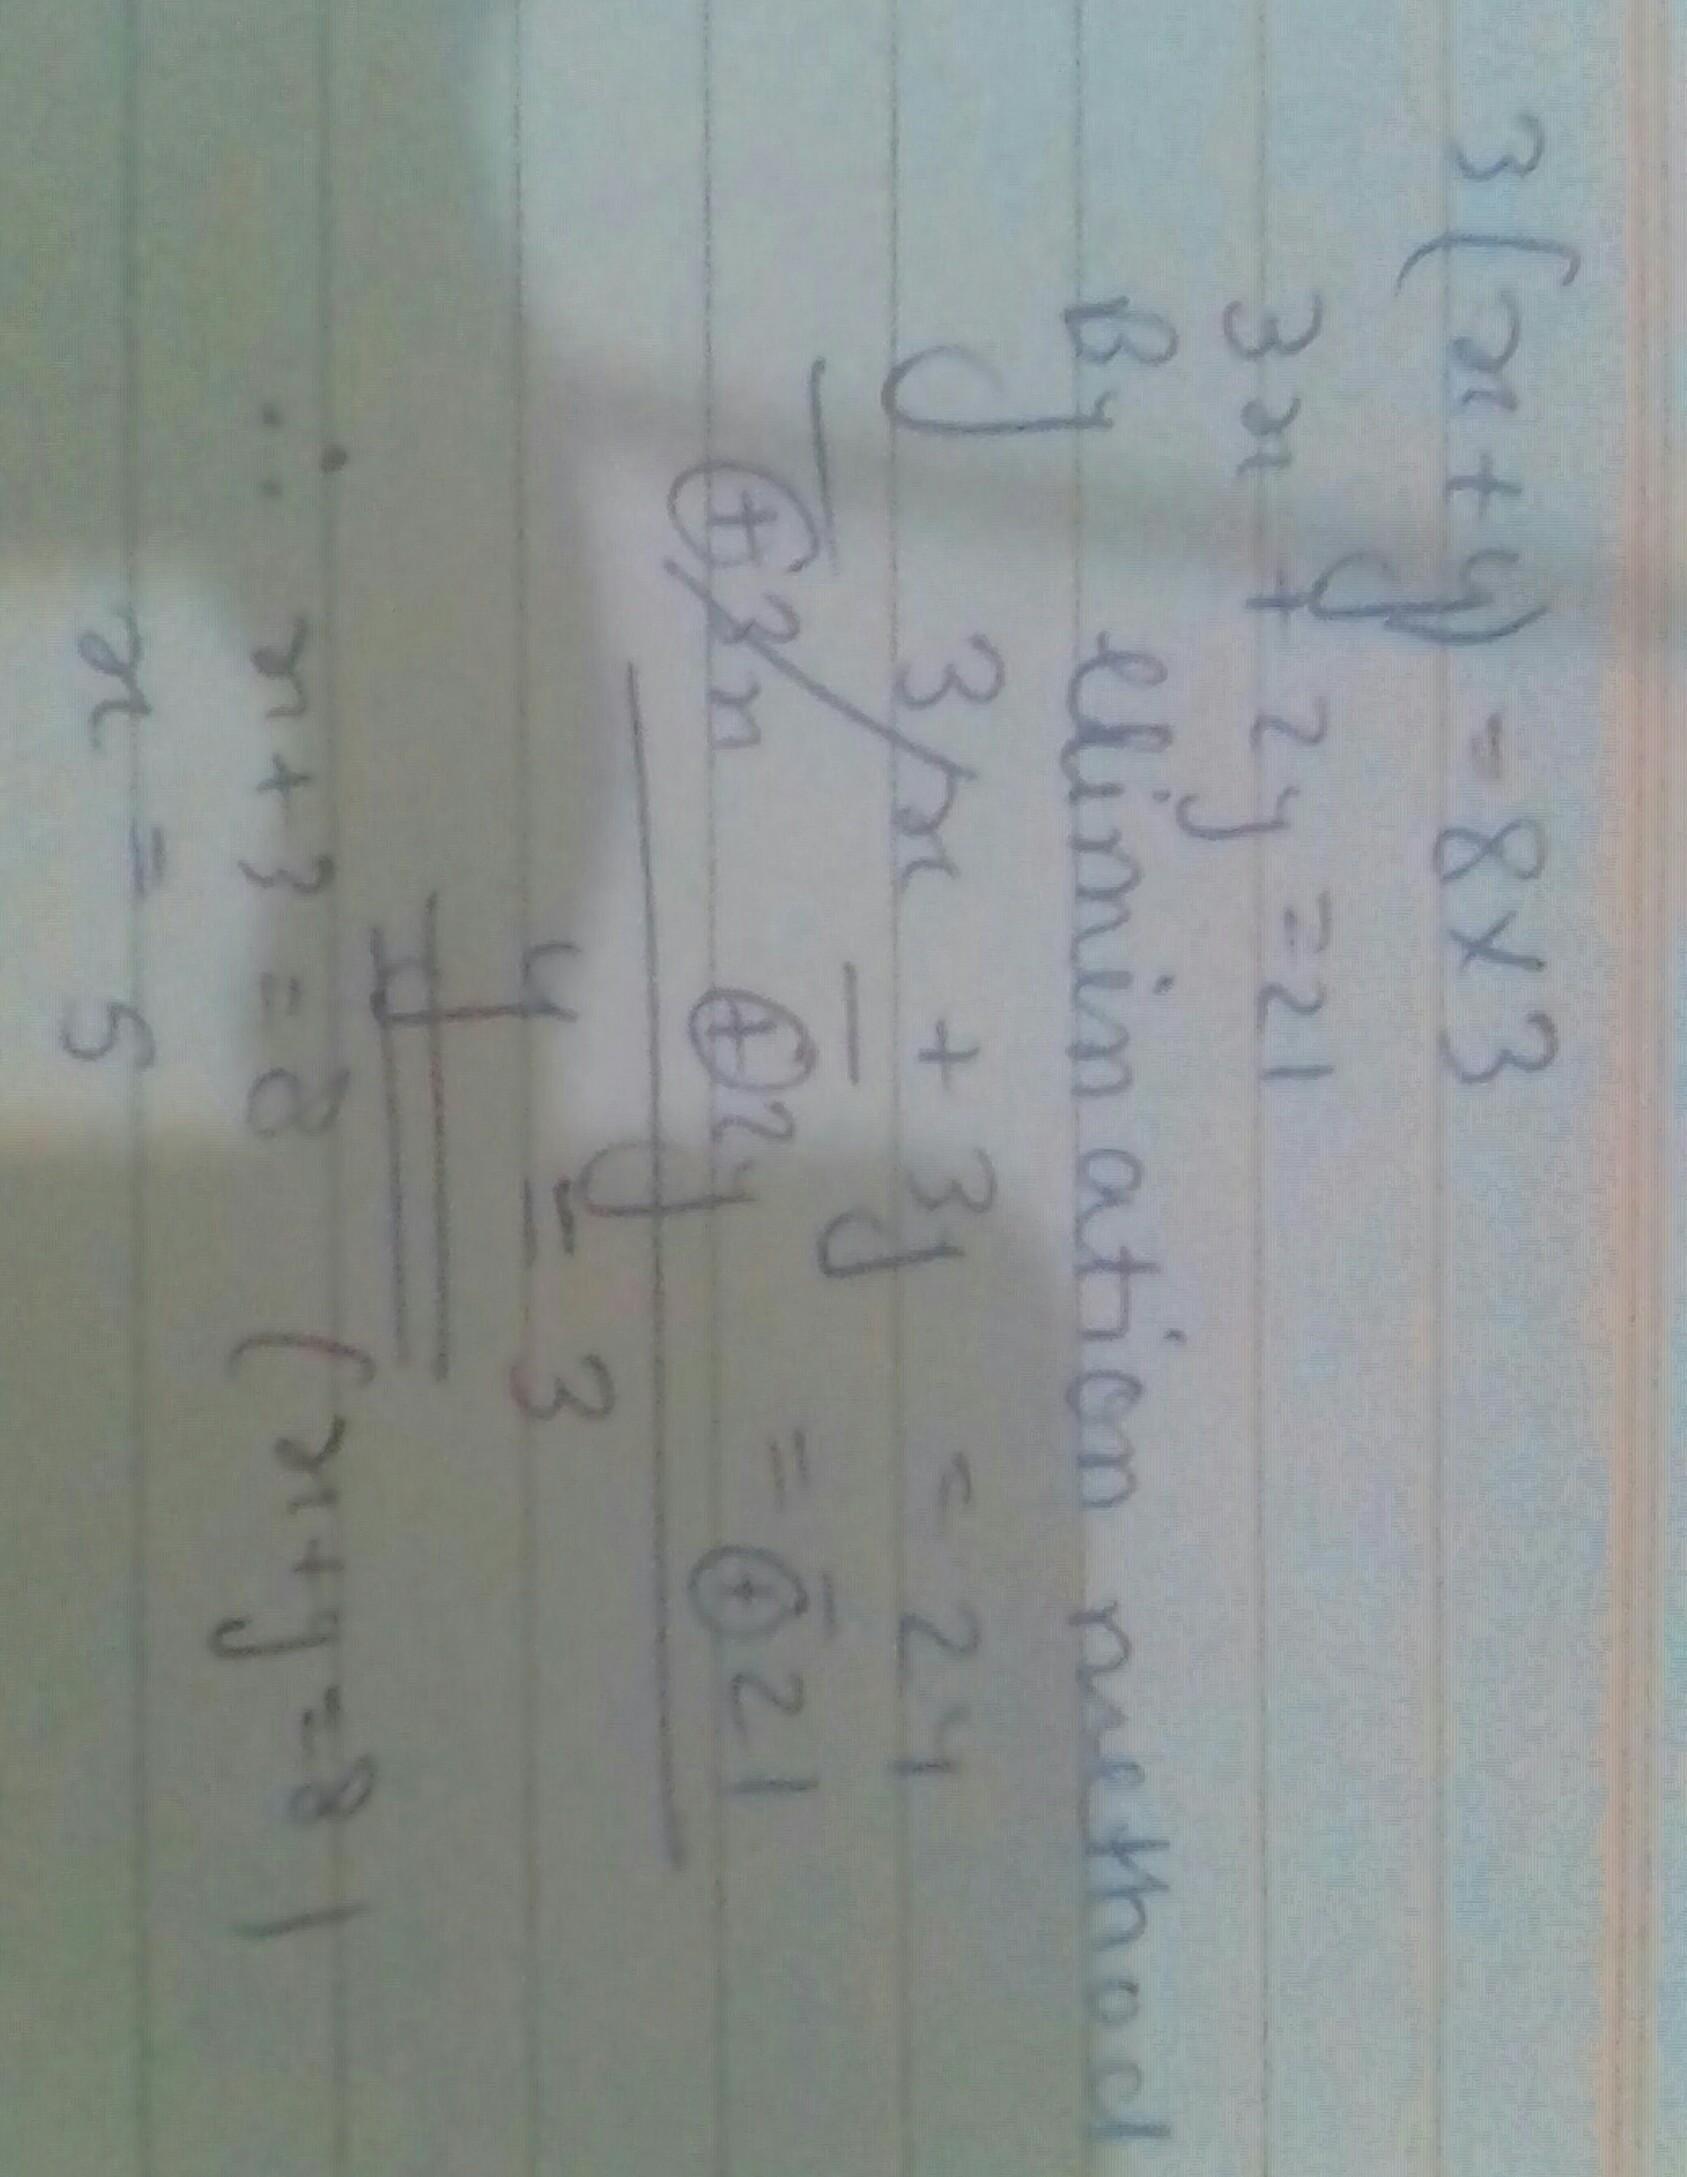 3(x+y) = 8×3
3x + 2y = 21
By elimination method
3x + 3y = 24
− − −
⊕3x ⊕2y = ⊕21
y = 3
∴ x+3 = 8 (x+y=8)
x = 5